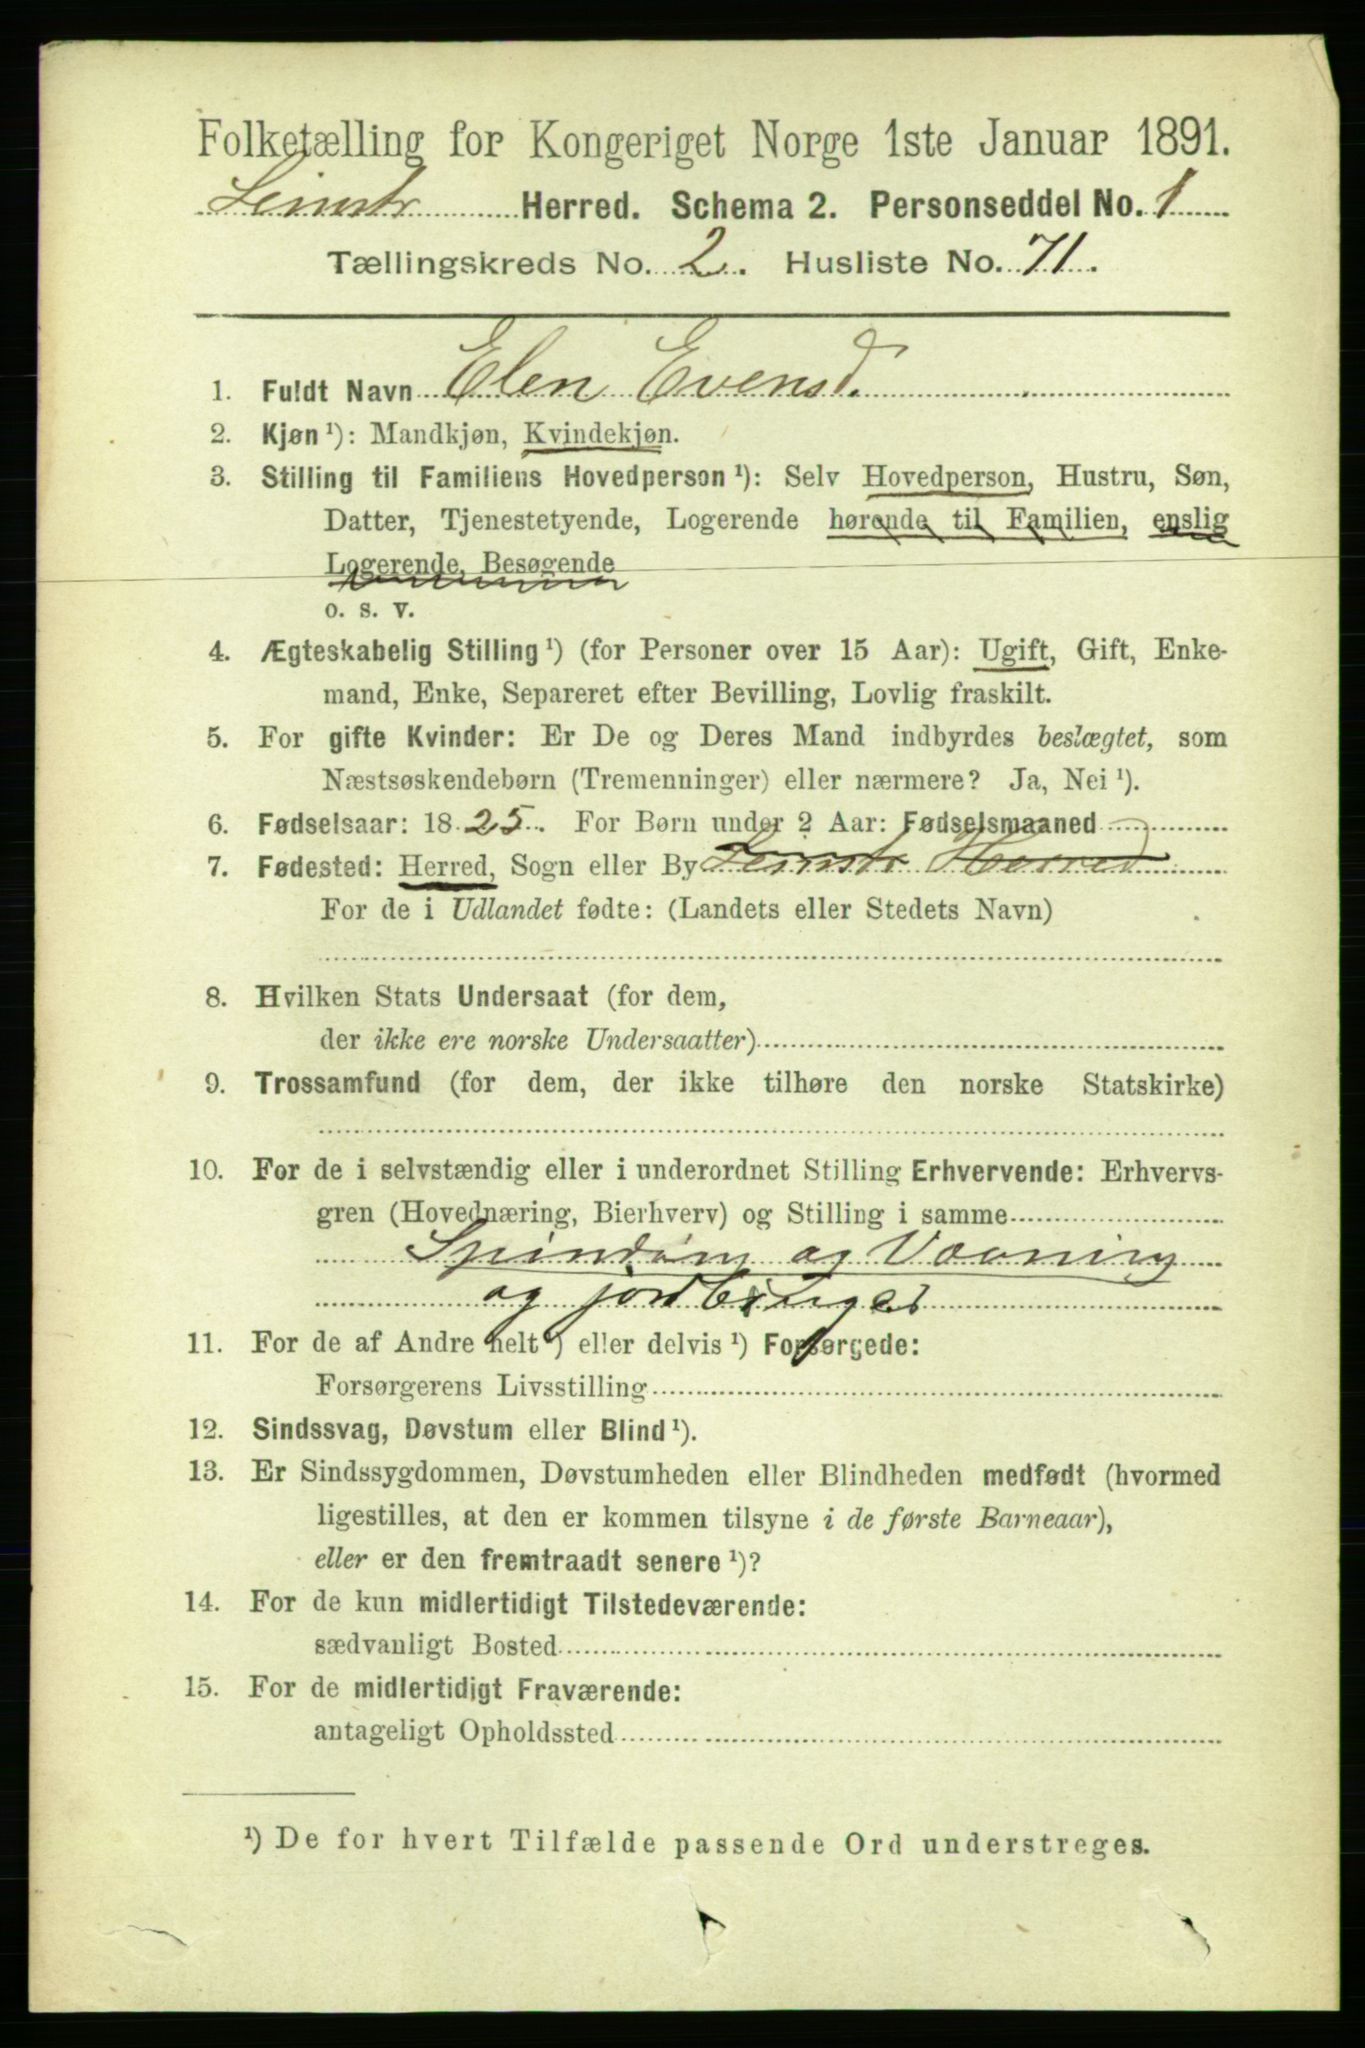 Folketælling for Kongeriget Norge 1ste Januar 1891.
Leinstr Herred. Schema 2. Personseddel No. 1
Tællingskreds No. 2. Husliste No. 71.
1. Fuldt Navn Elen Evensd.
2. Kjøn¹): Mandkjøn, Kvindekjøn.
3. Stilling til Familiens Hovedperson¹): Selv Hovedperson, Hustru, Søn,
Datter, Tjenestetyende, Logerende hørende til Familien, enslig
Logerende, Besøgende
o. s. v.
4. Ægteskabelig Stilling¹) (for Personer over 15 Aar): Ugift, Gift, Enke-
mand, Enke, Separeret efter Bevilling, Lovlig fraskilt.
5. For gifte Kvinder: Er De og Deres Mand indbyrdes beslægtet, som
Næstsøskendebørn (Tremenninger) eller nærmere? Ja, Nei¹).
6. Fødselsaar: 1825. For Børn under 2 Aar: Fødselsmaaned
7. Fødested: Herred, Sogn eller By Leinstr Herred
For de i Udlandet fødte: (Landets eller Stedets Navn)
8. Hvilken Stats Undersaat (for dem,
der ikke ere norske Undersaatter)
9. Trossamfund (for dem, der ikke tilhøre den norske Statskirke)
10. For de i selvstændig eller i underordnet Stilling Erhvervende: Erhvervs-
gren (Hovednæring, Bierhverv) og Stilling i samme
Spinding og Vævning
og jordbruger
11. For de af Andre helt¹) eller delvis¹) Forsørgede:
Forsørgerens Livsstilling
12. Sindssvag, Døvstum eller Blind¹).
13. Er Sindssygdommen, Døvstumheden eller Blindheden medfødt (hvormed
ligestilles, at den er kommen tilsyne i de første Barneaar),
eller er den fremtraadt senere¹)?
14. For de kun midlertidigt Tilstedeværende:
sædvanligt Bosted
15. For de midlertidigt Fraværende:
antageligt Opholdssted
¹) De for hvert Tilfælde passende Ord understreges.